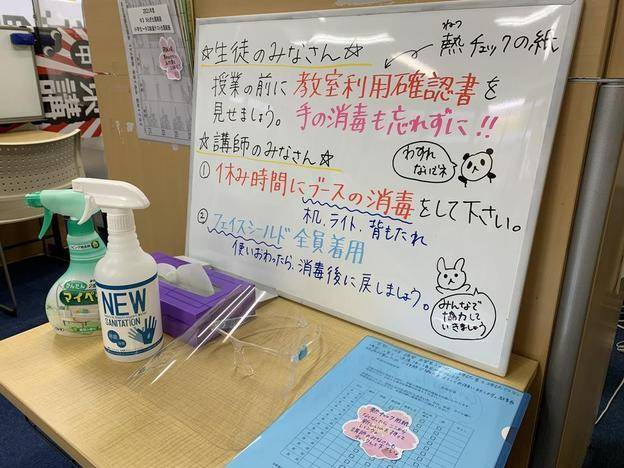 ☆生徒のみなさん☆
ねつ
熱チェックの紙
授業の前に 教室利用確認書を
見せましょう。手の消毒も忘れずに!!
☆講師のみなさん☆
わすれ
ないでネ
① 休み時間にブースの消毒をして下さい。
机、ライト、背もたれ
② フェイスシールド全員着用
使いおわったら、消毒後に戻しましょう。
みんなで
協力して
いきましょう
かんたん
マイペ
NEW
SANITATION
講